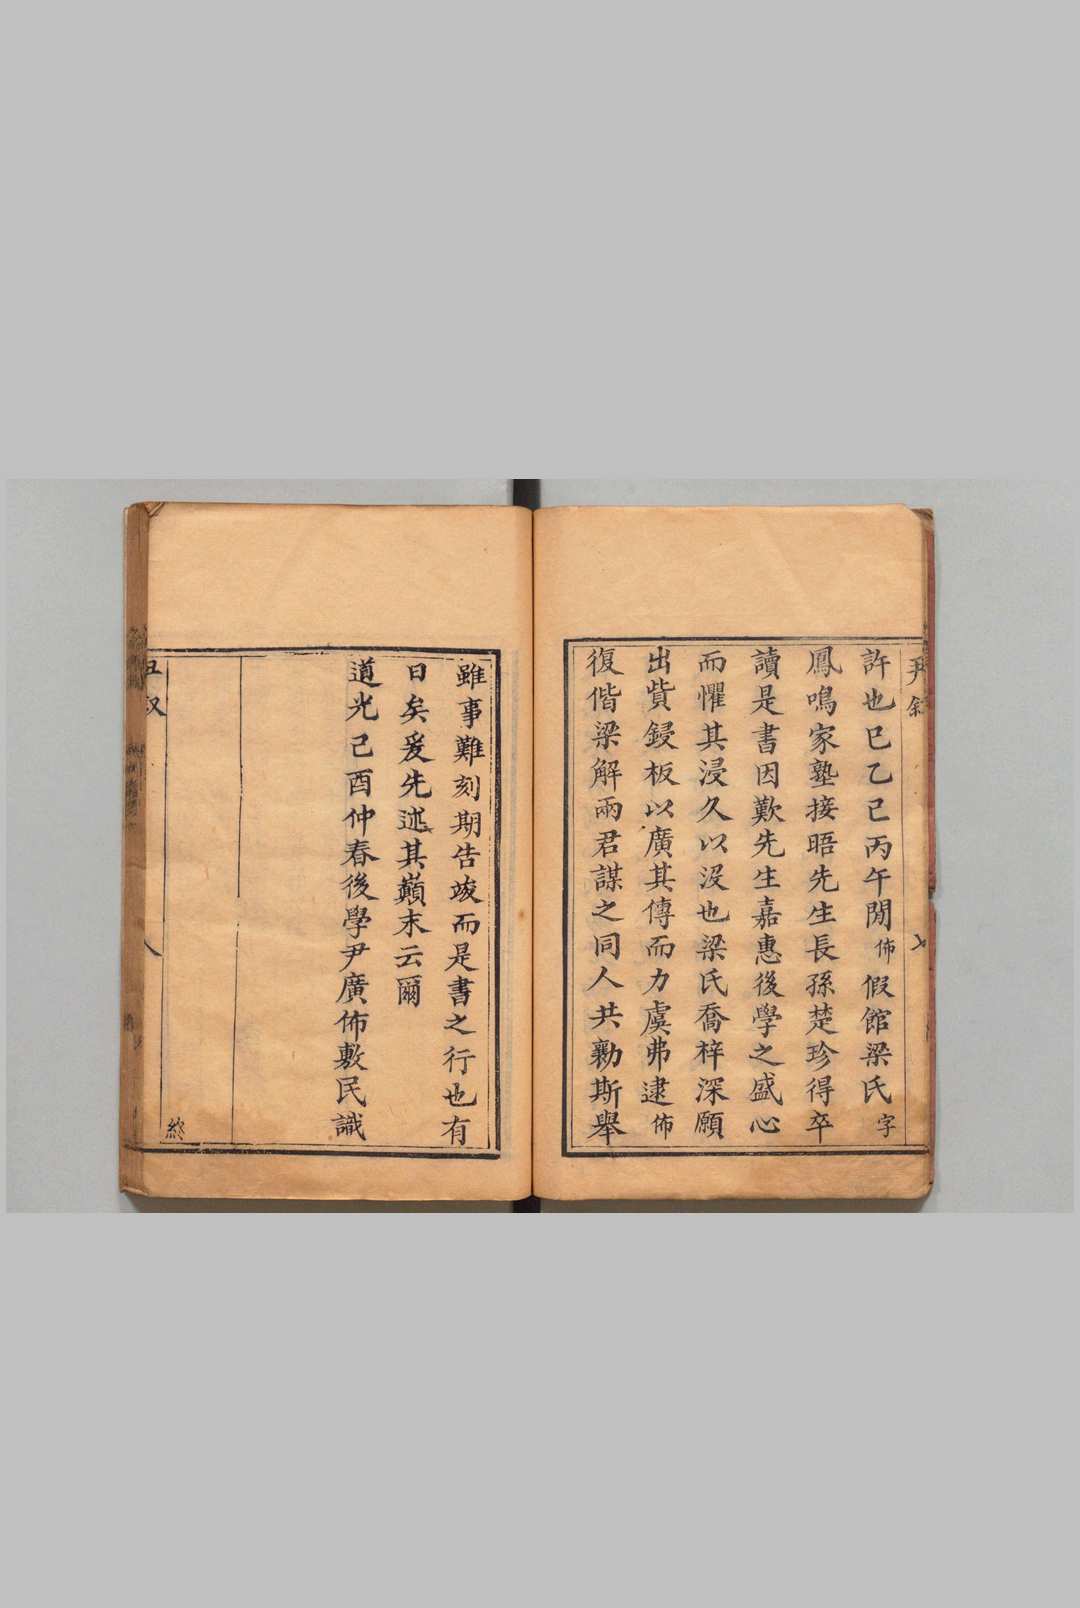 許也巳乙巳丙午閒佈假館梁氏字
鳳鳴家塾接晤先生長孫楚珍得卒
讀是書因歎先生嘉惠後學之盛心
而懼其浸久以沒也梁氏喬梓深願
出貲鋟板以廣其傳而力虞弗逮佈
復偕梁解兩君謀之同人共勷斯舉
雖事難刻期告竣而是書之行也有
日矣爰先述其巔末云爾
道光己酉仲春後學尹廣佈敷民識
終